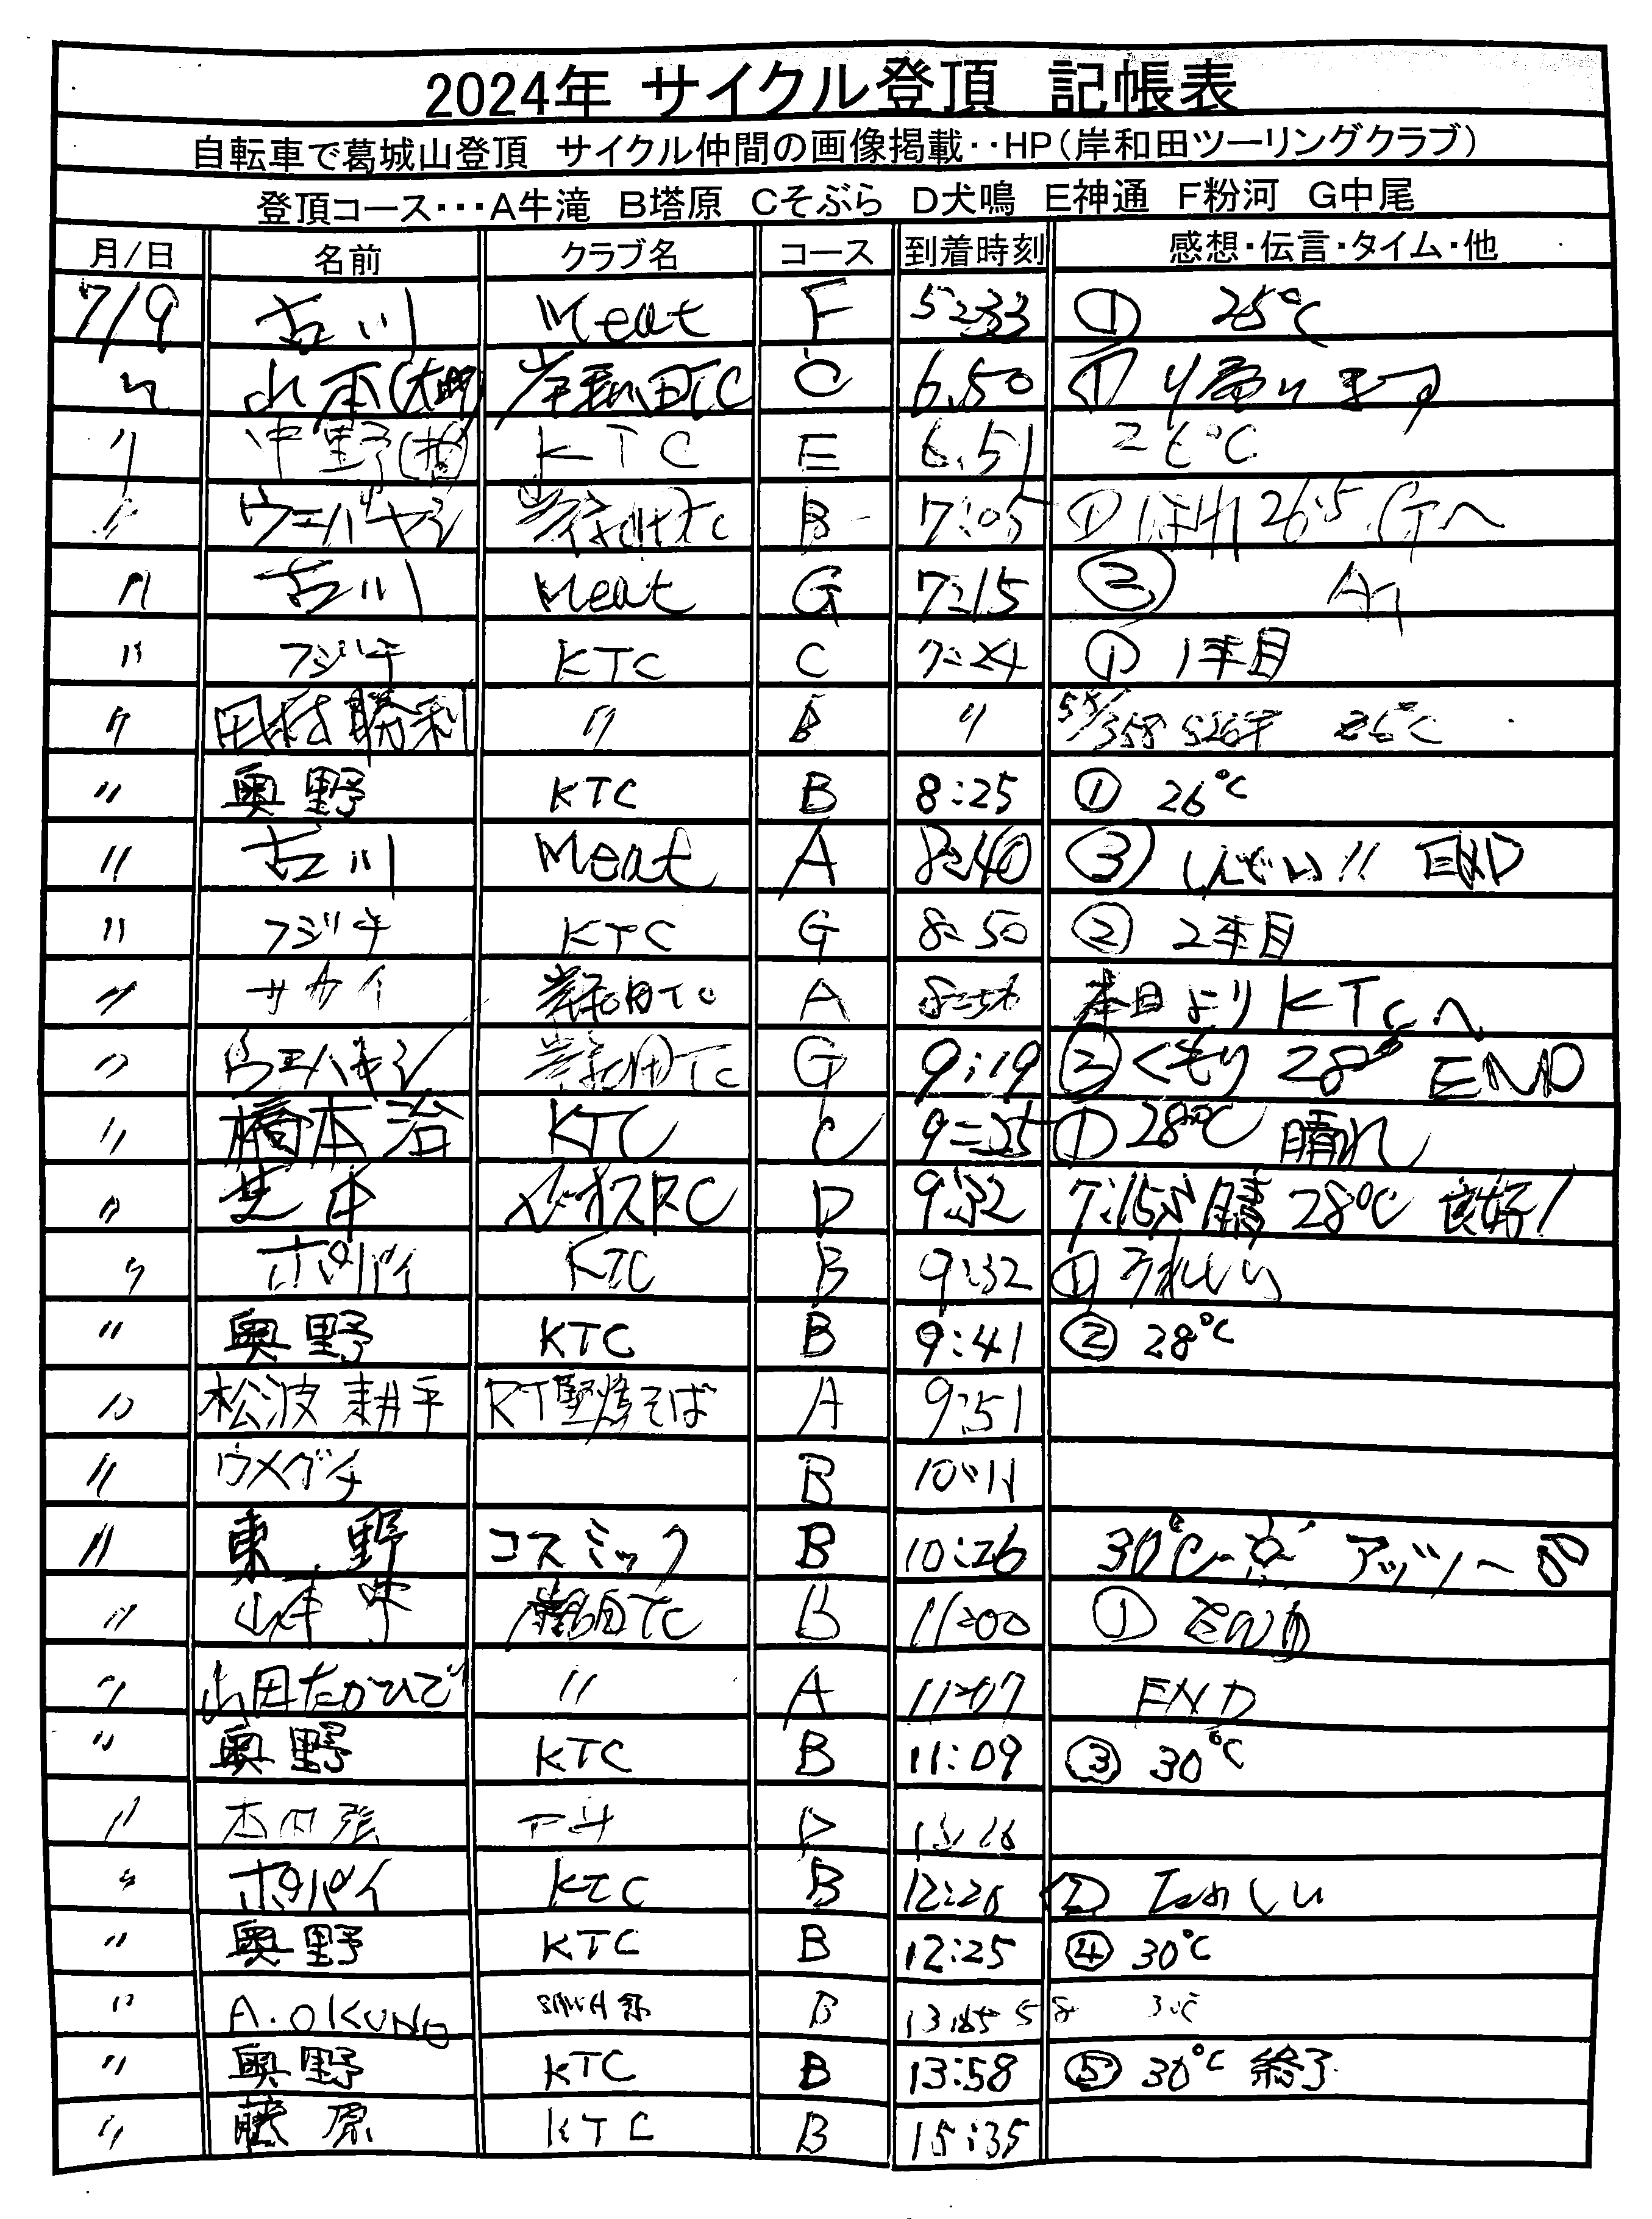 2024年 サイクル登頂 記帳表
自転車で葛城山登頂 サイクル仲間の画像掲載・・HP(岸和田ツーリングクラブ)
登頂コース・・・A牛滝 B塔原 Cそぶら D犬鳴 E神通 F粉河 G中尾
月/日 名前 クラブ名 コース 到着時刻 感想・伝言・タイム・他
7/9 古川 Meat F 5:33 ① 25℃
〃 山本 岸和田TC C 6.50 ①
〃 中野 KTC E 6.51 26℃
〃 ウエバヤシ 岸和田TC B 7:05 ① はれ 26.5 Gへ
〃 古川 Meat G 7:15 ② Aへ
〃 フジキ KTC C 7:24 ① 1本目
〃 田村 勝利 〃 B 〃 26℃
〃 奥野 KTC B 8:25 ① 26℃
〃 古川 Meat A 8:40 ③ しんどい!! END
〃 フジキ KTC G 8:50 ② 2本目
〃 サカイ 岸和田TC A 本日より KTCへ
〃 ウエバヤシ 岸和田TC G 9:19 ② くもり 28° END
〃 橋本 治 KTC C 9:25 ① 28℃ 晴れ
〃 D 9:32 晴 28℃ 良好!
〃 ポパイ KTC B 9:32 ① うれしい
〃 奥野 KTC B 9:41 ② 28℃
〃 松波 耕平 RT堅焼そば A 9:51
〃 ウメグチ B 10:11
〃 東 野 コスミック B 10:26 30℃ アッヅ〜
〃 山本 岸和田TC B 11:00 ① END
〃 山田たかひで 〃 A 11:07 END
〃 奥野 KTC B 11:09 ③ 30℃
〃 D
〃 ポパイ KTC B 12:20 ②
〃 奥野 KTC B 12:25 ④ 30℃
〃 A.OKUNO B
〃 奥野 KTC B 13:58 ⑤ 30℃ 終了
〃 藤原 KTC B 15:35